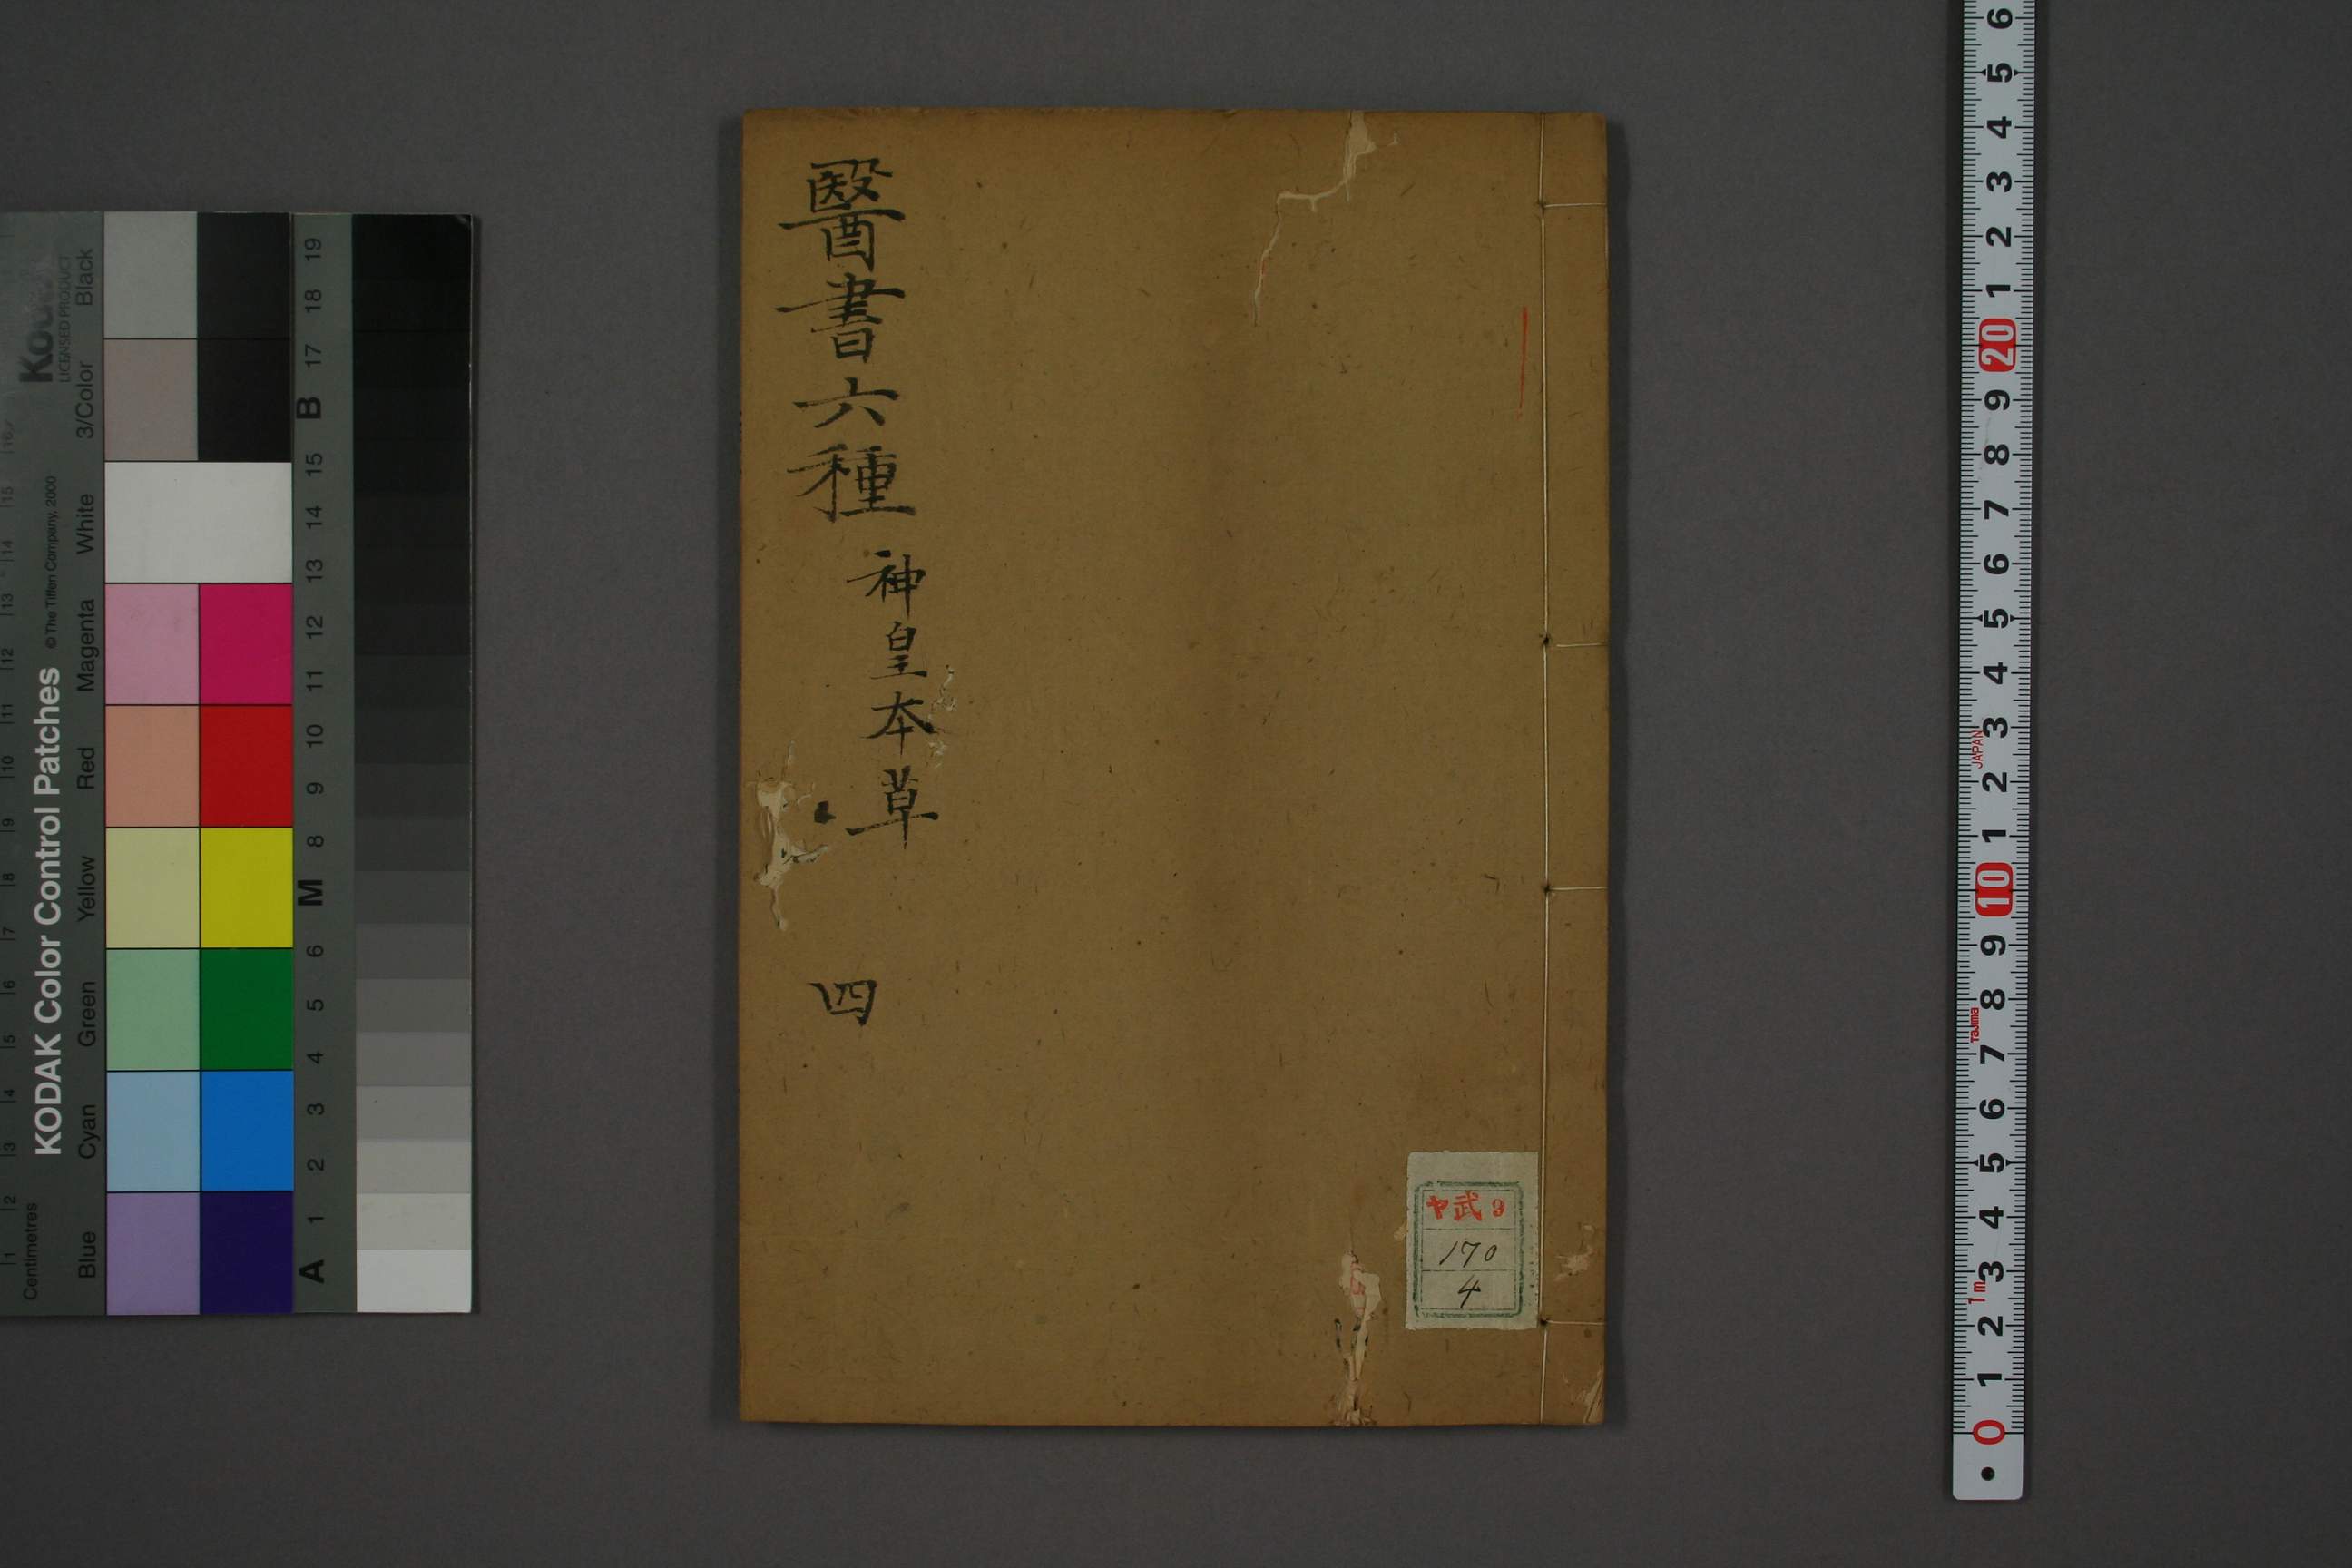 醫書六種
神皇本草
四
ヤ武9
170
4
KODAK Color Control Patches
©The Tiffen Company, 2000
Kodak
LICENSED PRODUCT
Centimetres
Blue Cyan Green Yellow Red Magenta White 3/Color Black
A 1 2 3 4 5 6 M 8 9 10 11 12 13 14 15 B 17 18 19
6 5 4 3 2 1 20 9 8 7 6 5 4 3 2 1 10 9 8 7 6 5 4 3 2 1 0
JAPAN
Tajima
1m